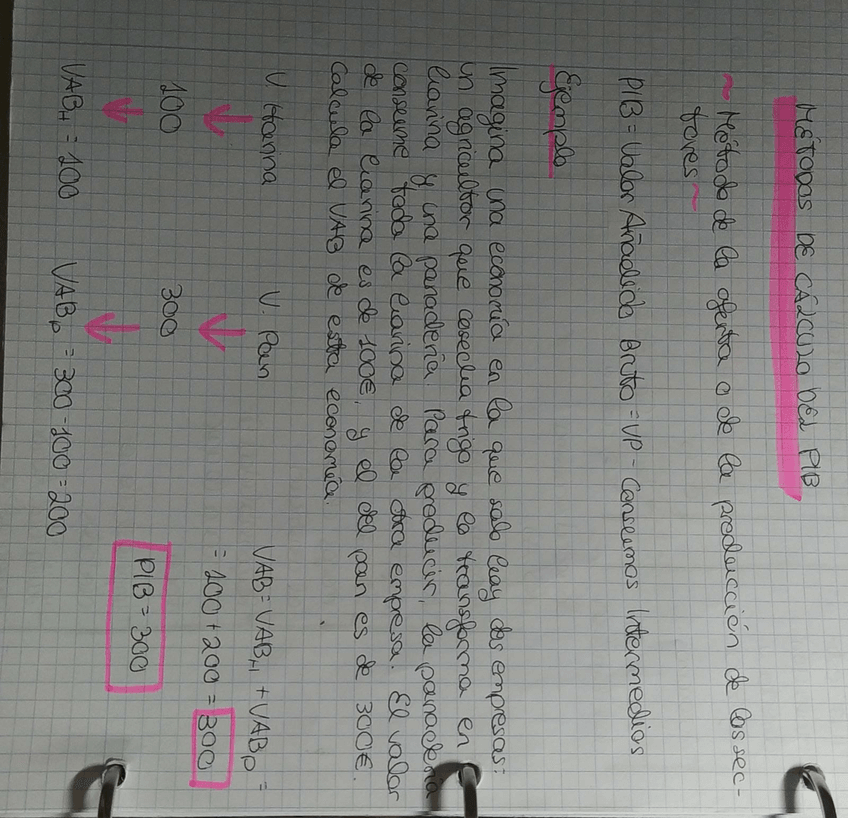 MÉTODOS DE CÁLCULO DEL PIB
~ Método de la oferta o de la producción de los sec-
tores ~
PIB = Valor Añadido Bruto = VP - Consumos Intermedios
Ejemplo
Imagina una economía en la que solo hay dos empresas:
un agricultor que cosecha trigo y lo transforma en
harina y una panadería. Para producir, la panadería
consume toda la harina de la otra empresa. El valor
de la harina es de 100€, y el del pan es de 300€.
Calcula el VAB de esta economía.
V. Harina
V. Pan
VAB = VAB_H + VAB_P =
100
300
= 100 + 200 = 300
VAB_H = 100
VAB_P = 300 - 100 = 200
PIB = 300